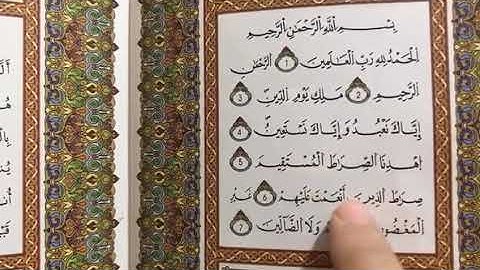 بِسْمِ اللَّهِ الرَّحْمَٰنِ الرَّحِيمِ
الْحَمْدُ لِلهِ رَبِّ الْعَالَمِينَ ① الرَّحْمَٰنِ
الرَّحِيمِ ② مَلِكِ يَوْمِ الدِّينِ ③
إِيَّاكَ نَعْبُدُ وَإِيَّاكَ نَسْتَعِينُ ④
اهْدِنَا الصِّرَاطَ الْمُسْتَقِيمَ ⑤
صِرَاطَ الذِينَ أَنْعَمْتَ عَلَيْهِمْ ⑥ غَيْرِ
وَلَا الضَّالِّينَ ⑦